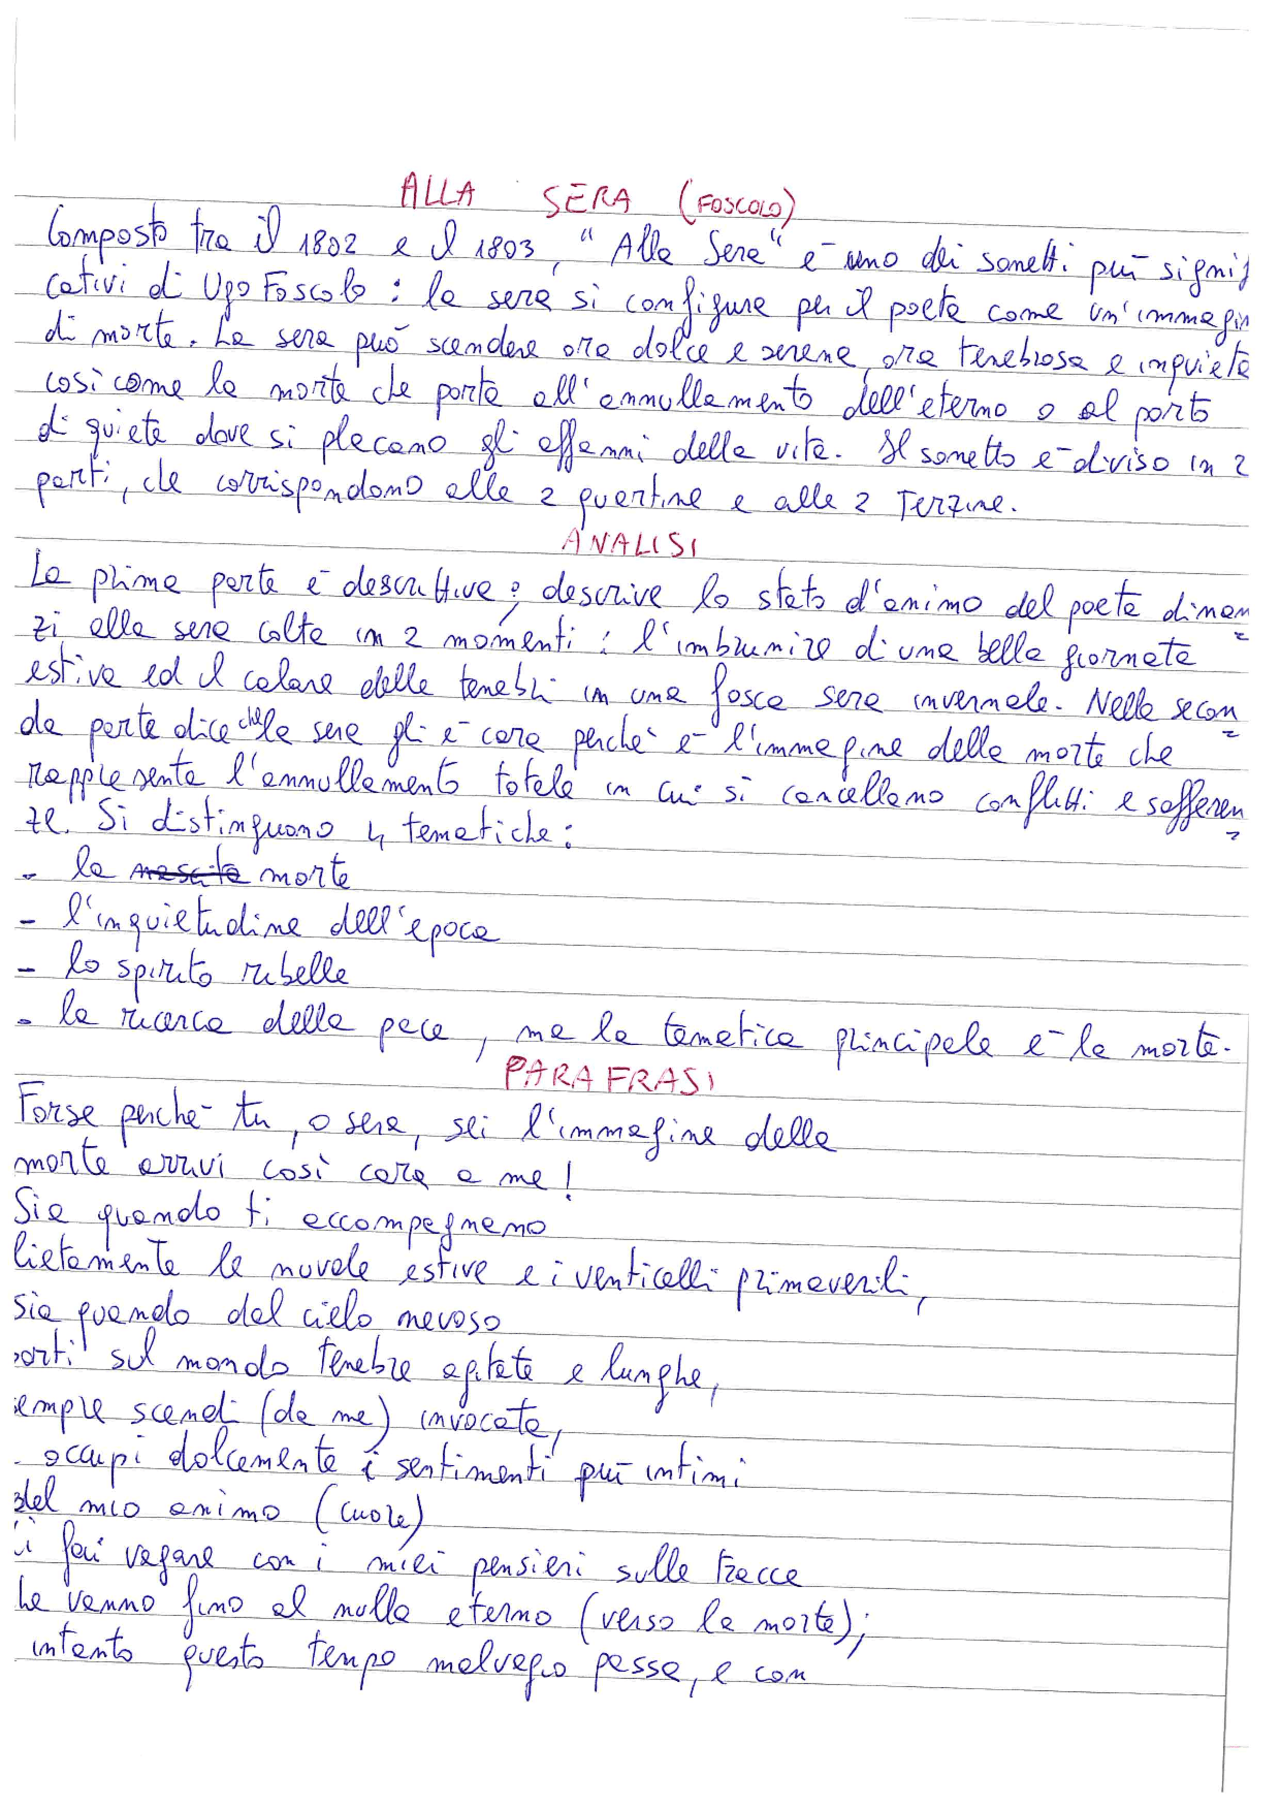 ALLA SERA (FOSCOLO)
Composto tra il 1802 e il 1803, "Alla Sera" è uno dei sonetti più signif
cativi di Ugo Foscolo: la sera si configura per il poeta come un'immagin
di morte. La sera può scendere ora dolce e serena, ora tenebrosa e inquieta
così come la morte che porta all'annullamento dell'eterno o al porto
di quiete dove si placano gli affanni della vita. Il sonetto è diviso in 2
parti, che corrispondono alle 2 quartine e alle 2 Terzine.
ANALISI
La prima parte è descrittiva; descrive lo stato d'animo del poeta dinan
zi alla sera colta in 2 momenti: l'imbrunire di una bella giornata
estiva ed il calare delle tenebri in una fosca sera invernale. Nella secon
da parte dice che la sera gli è cara perchè è l'immagine della morte che
rappresenta l'annullamento totale in cui si cancellano conflitti e sofferen
ze. Si distinguono 4 tematiche:
- la nascita morte
- l'inquietudine dell'epoca
- lo spirito ribelle
- la ricerca della pace, ma la tematica principale è la morte.
PARAFRASI
Forse perchè tu, o sera, sei l'immagine della
morte arrivi così cara a me!
Sia quando ti accompagnano
lietamente le nuvole estive e i venticelli primaverili,
sia quando dal cielo nevoso
porti sul mondo tenebre agitate e lunghe,
empre scendi (da me) invocata,
occupi dolcemente i sentimenti più intimi
del mio animo (cuore)
i fai vagare con i miei pensieri sulle tracce
he vanno fino al nulla eterno (verso la morte);
intanto questo tempo malvagio passa, e con